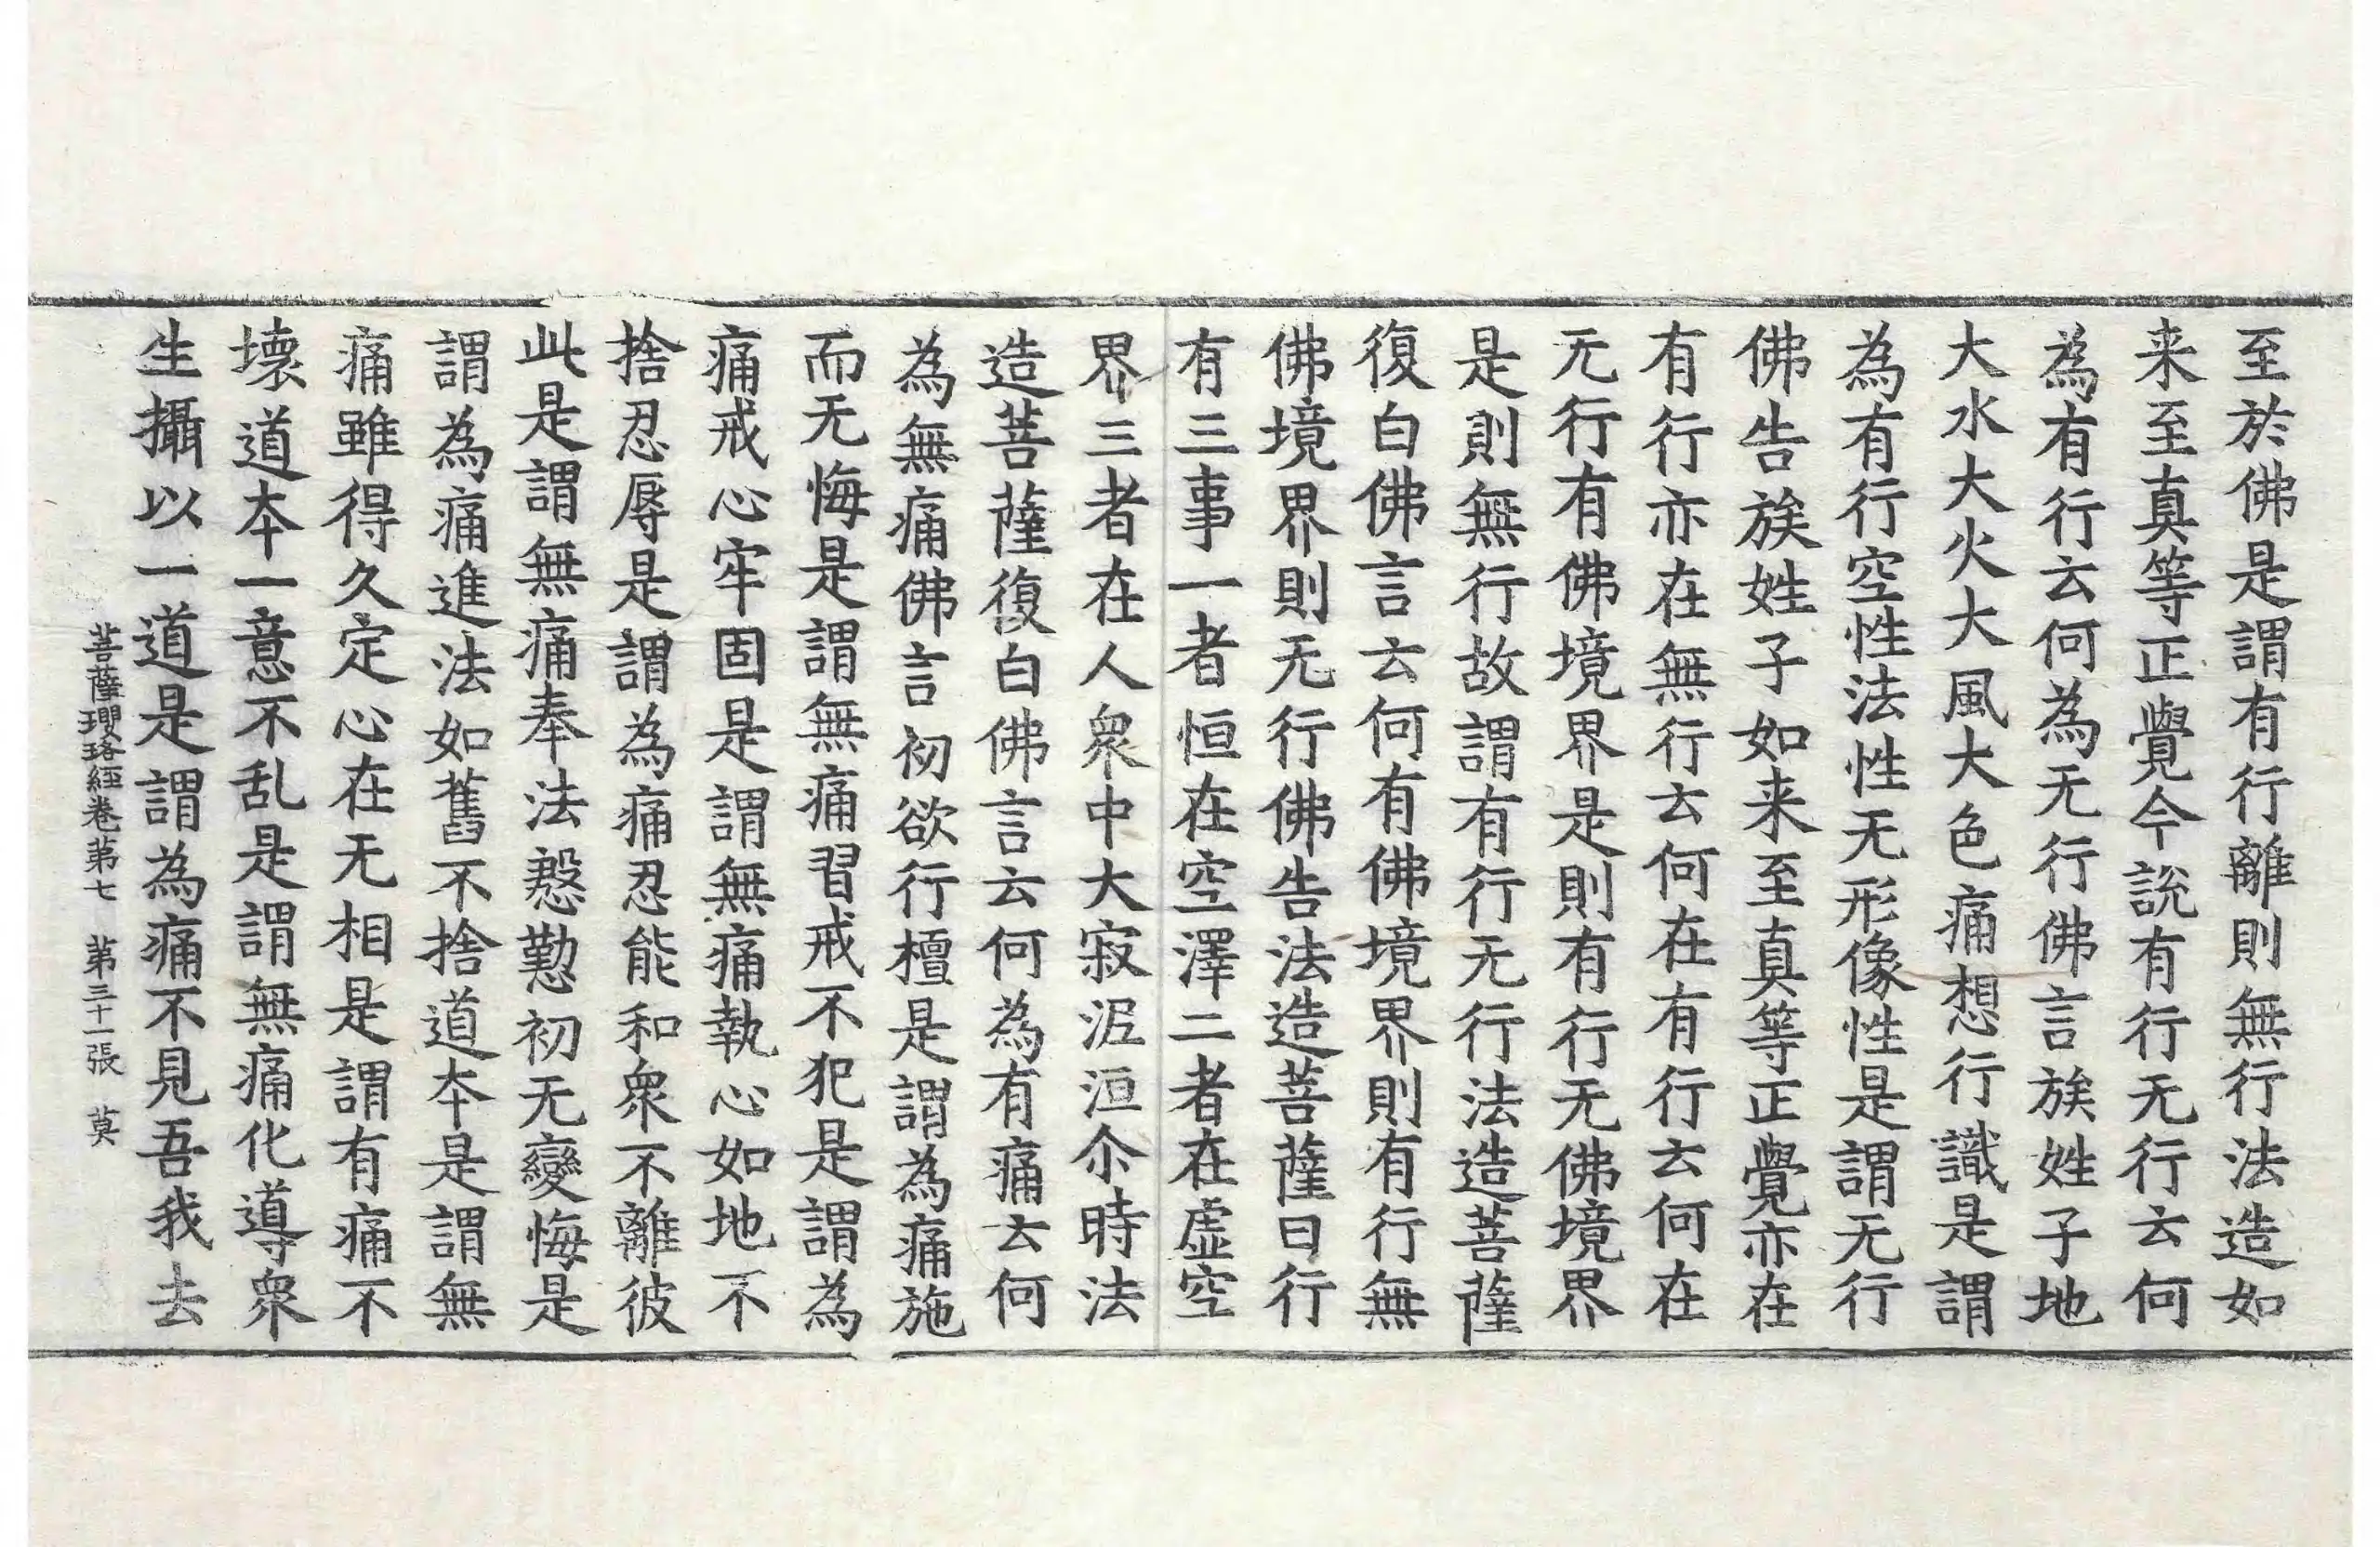 至於佛是謂有行離則無行法造如
来至真等正覺今說有行无行云何
為有行云何為无行佛言族姓子地
大水大火大風大色痛想行識是謂
為有行空性法性无形像性是謂无行
佛告族姓子如来至真等正覺亦在
有行亦在無行云何在有行云何在
无行有佛境界是則有行无佛境界
是則無行故謂有行无行法造菩薩
復白佛言云何有佛境界則有行無
佛境界則无行佛告法造菩薩曰行
有三事一者恒在空澤二者在虛空
界三者在人衆中大寂泥洹尒時法
造菩薩復白佛言云何為有痛云何
為無痛佛言初欲行檀是謂為痛施
而无悔是謂無痛習戒不犯是謂為
痛戒心牢固是謂無痛執心如地不
捨忍辱是謂為痛忍能和衆不離彼
此是謂無痛奉法慇懃初无變悔是
謂為痛進法如舊不捨道本是謂無
痛雖得久定心在无相是謂有痛不
壞道本一意不乱是謂無痛化導衆
生攝以一道是謂為痛不見吾我去
菩薩瓔珞經卷第七 第三十一張 莫